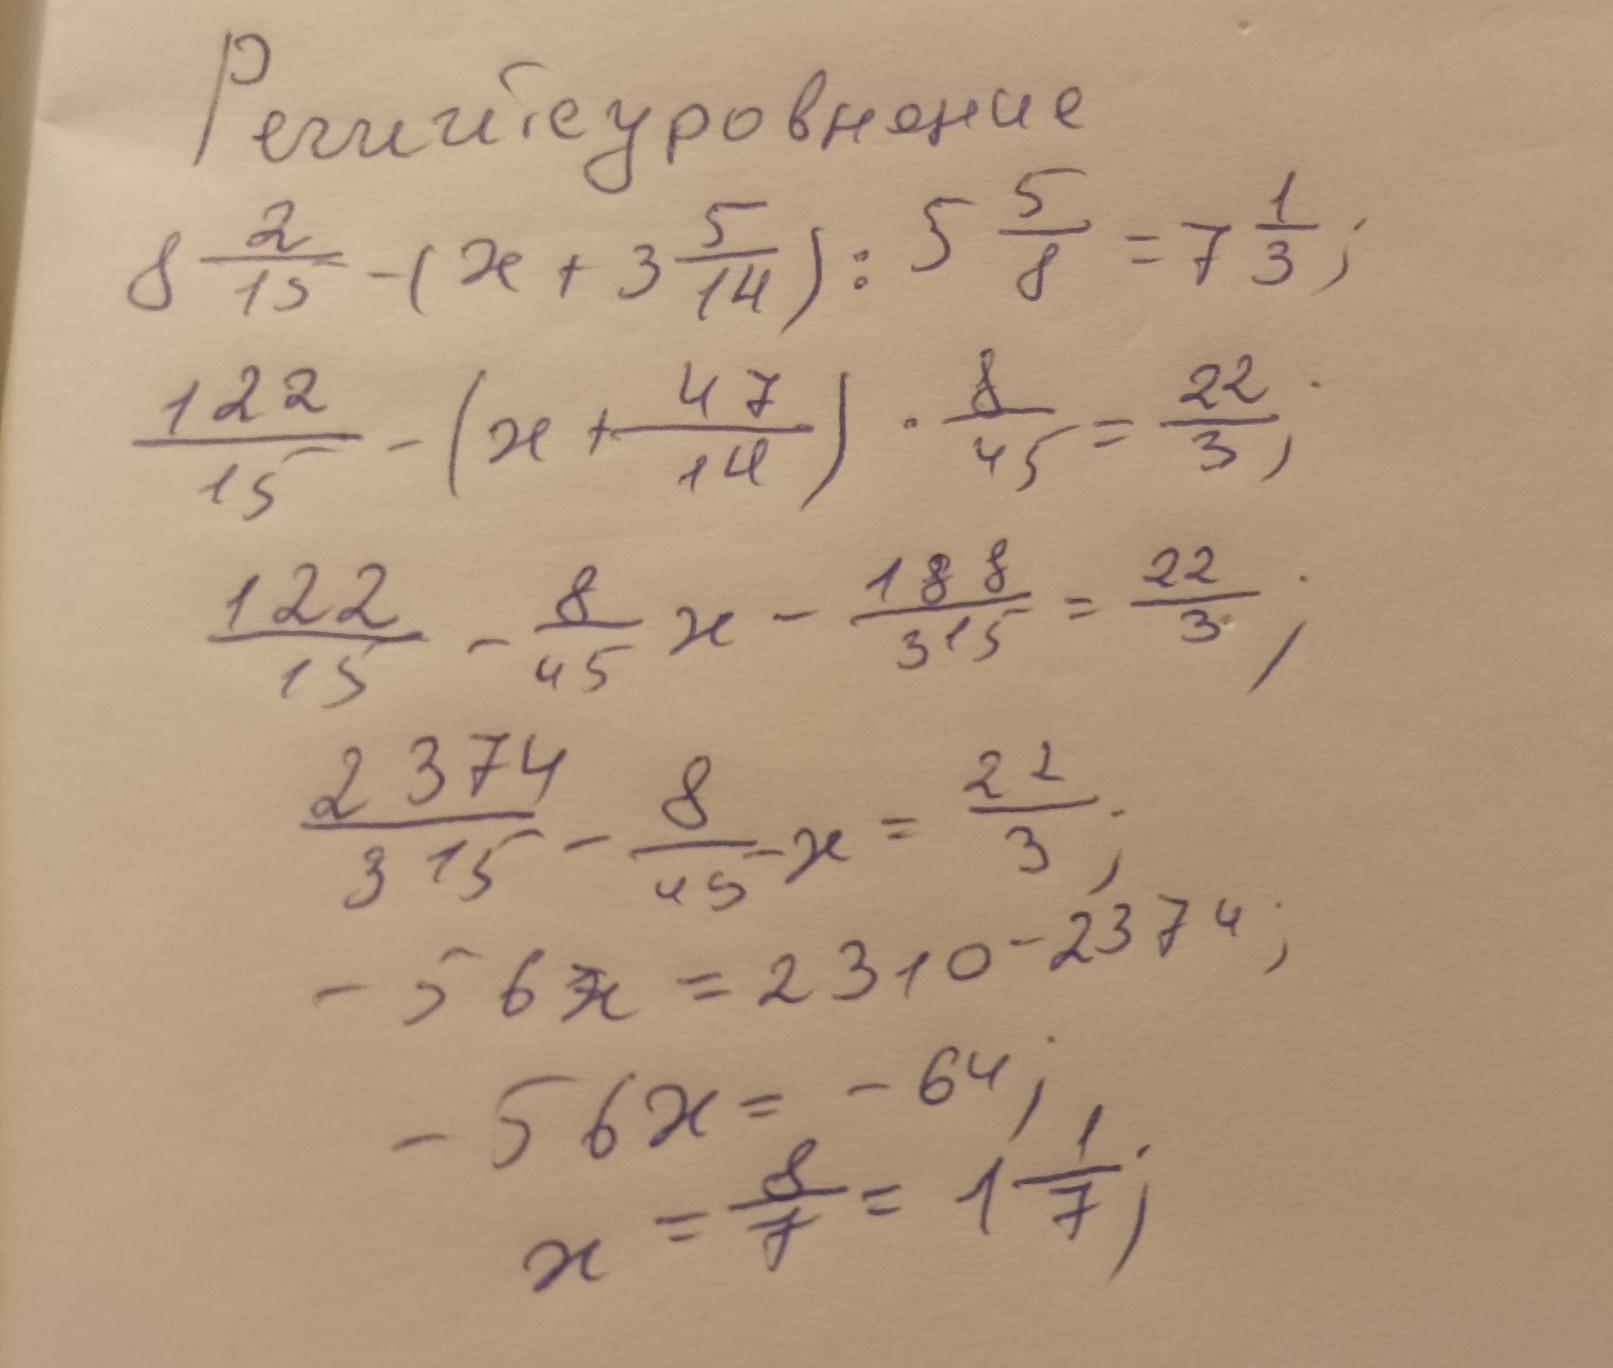 Решите уровнение
8 2/15 - (x + 3 5/14) : 5 5/8 = 7 1/3;
122/15 - (x + 47/14) · 8/45 = 22/3;
122/15 - 8/45 x - 188/315 = 22/3;
2374/315 - 8/45 x = 22/3;
-56x = 2310 - 2374;
-56x = -64;
x = 8/7 = 1 1/7;